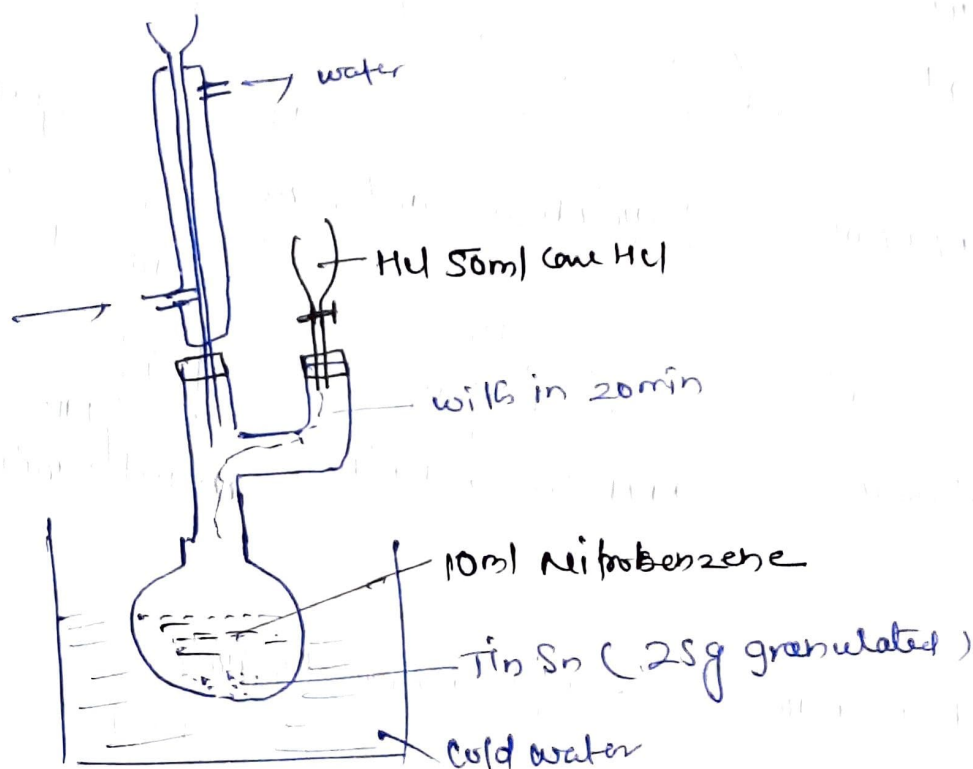 water
HCl 50ml conc HCl
in 20min
10ml Nitrobenzene
Tin Sn ( 25g granulated )
Cold water